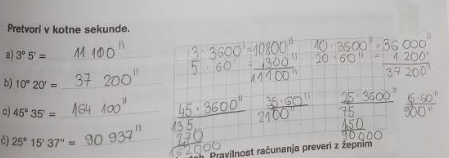 Pretvori v kotne sekunde.
a) 3° 5' = 11 100"
b) 10° 20' = 37 200"
c) 45° 35' = 164 100"
č) 25° 15' 37" = 90 937"
3 · 3600' = 10800"
5 · 60' = 300"
11100"
10 · 3600" = 36 000"
20 · 60" = 1 200'
37 200'
45 · 3600"
135
270
162000
35 · 60"
2100"
25 · 3600"
75
150
90000
900"
Pravilnost računanja preveri z žepnim